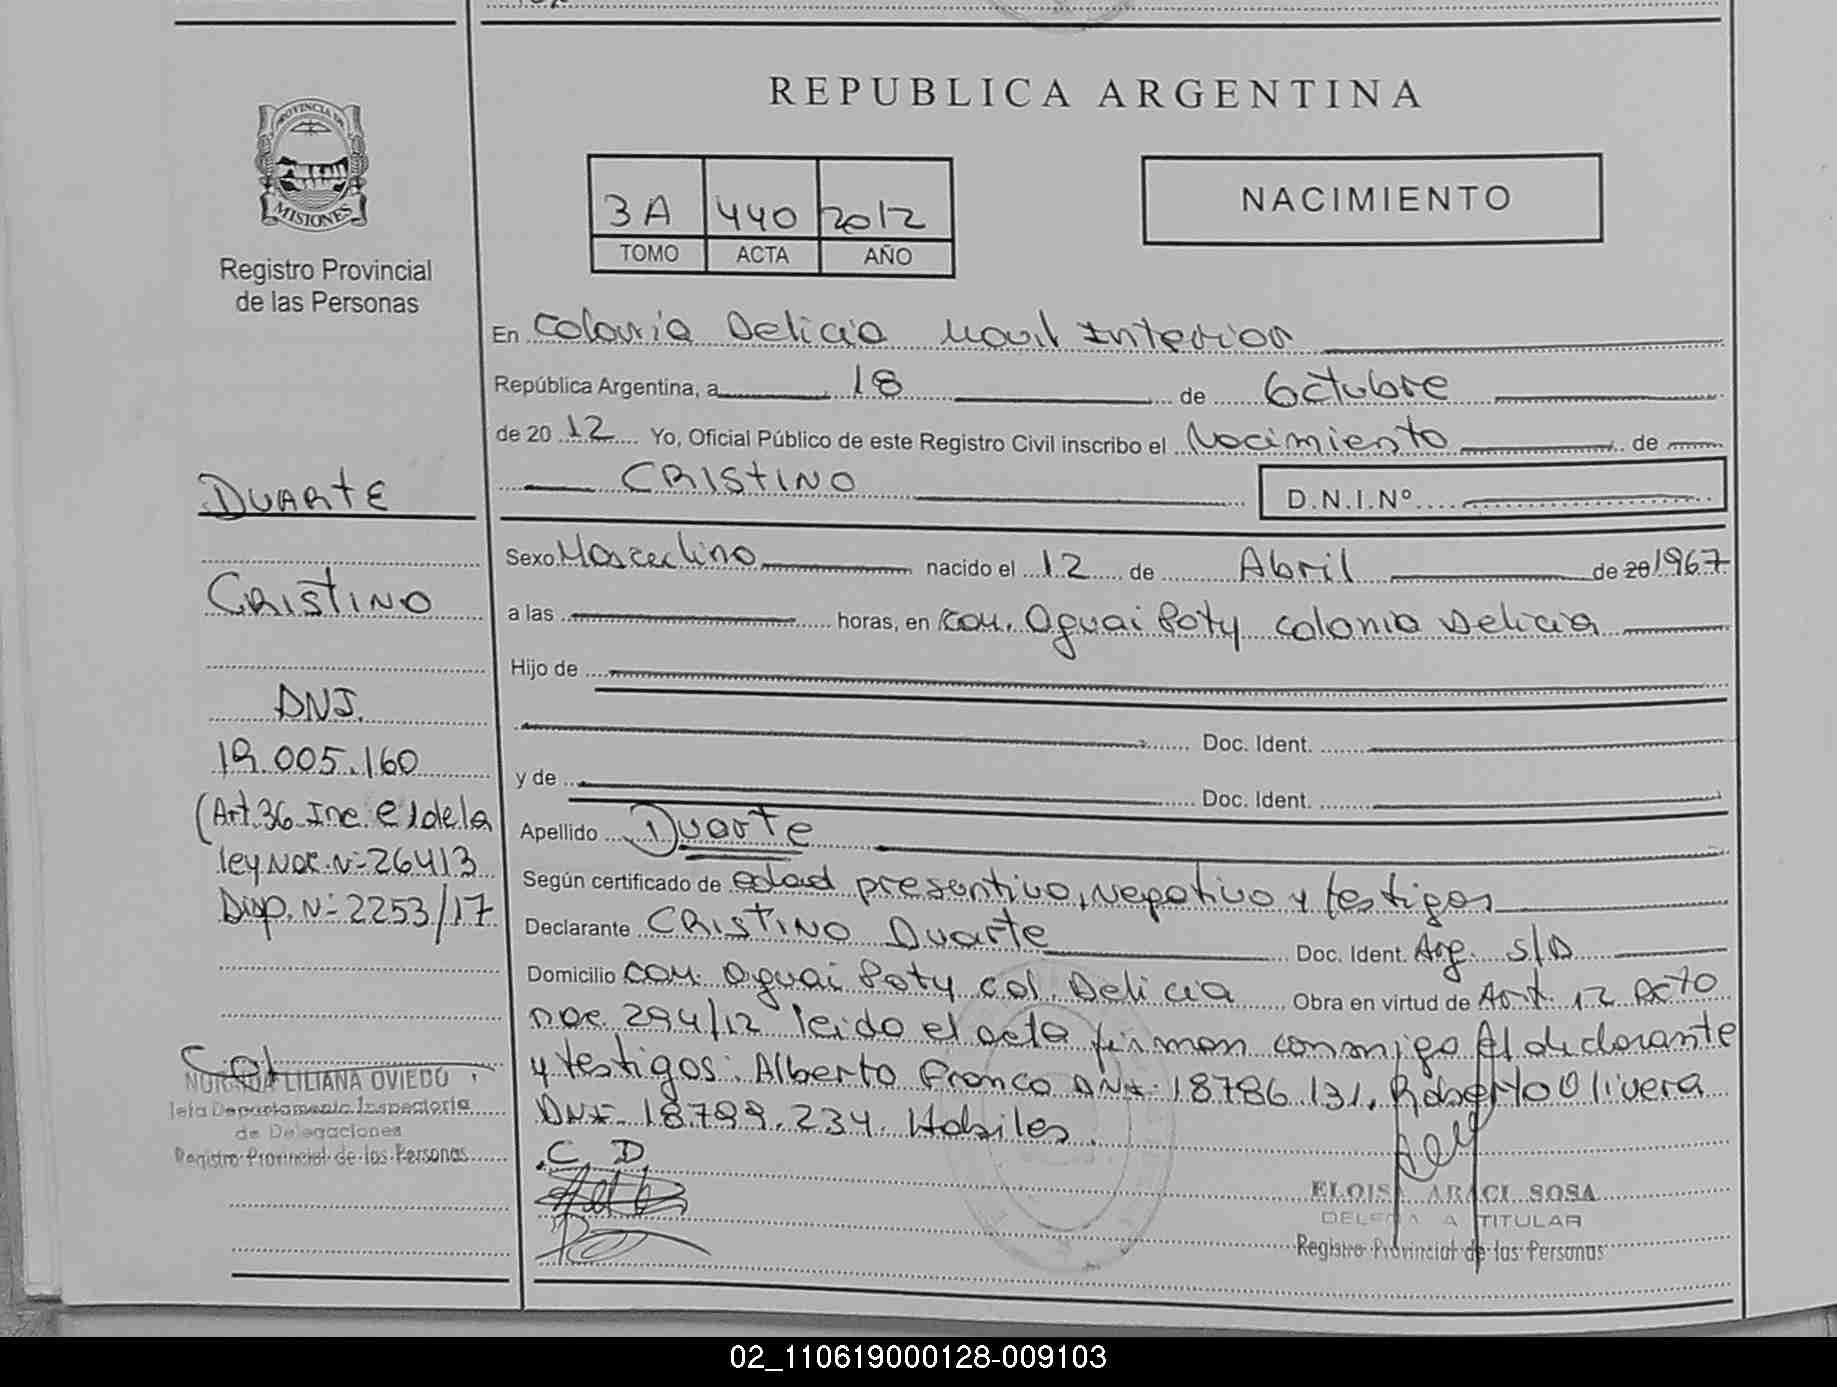 REPUBLICA ARGENTINA
PROVINCIA DE
MISIONES
Registro Provincial
de las Personas
3A 440 2012
TOMO ACTA AÑO
NACIMIENTO
En Colonia Delicia Movil Interior
República Argentina, a 18 de Octubre
de 20 12 Yo, Oficial Público de este Registro Civil inscribo el Nacimiento de
CRISTINO D.N.I.Nº
Sexo Masculino nacido el 12 de Abril de 20 1967
a las horas, en Com. Aguai Poty Colonia Delicia
Hijo de
Doc. Ident.
y de Doc. Ident.
Apellido Duarte
Según certificado de edad presentivo, Negativo y testigos
Declarante CRISTINO Duarte Doc. Ident. Arg. S/D
Domicilio Com. Aguai Poty Col. Delicia Obra en virtud de Art. 12 Dcto
nac. 294/12 leido el acta firman conmigo el declarante
y testigos: Alberto Franco DNI: 18786.131, Roberto Olivera
DNI- 18.799.234. Habiles.
C D
ELOISA ARACI SOSA
DELEGADA TITULAR
Registro Provincial de las Personas
DUARTE
CRISTINO
DNI.
19.005.160
(Art.36 Inc. e) de la
ley Nac. Nº 26413
Disp. Nº 2253/17
LILIANA OVIEDO
Jefa Departamento Inspectoria
de Delegaciones
Registro Provincial de las Personas
02_110619000128-009103